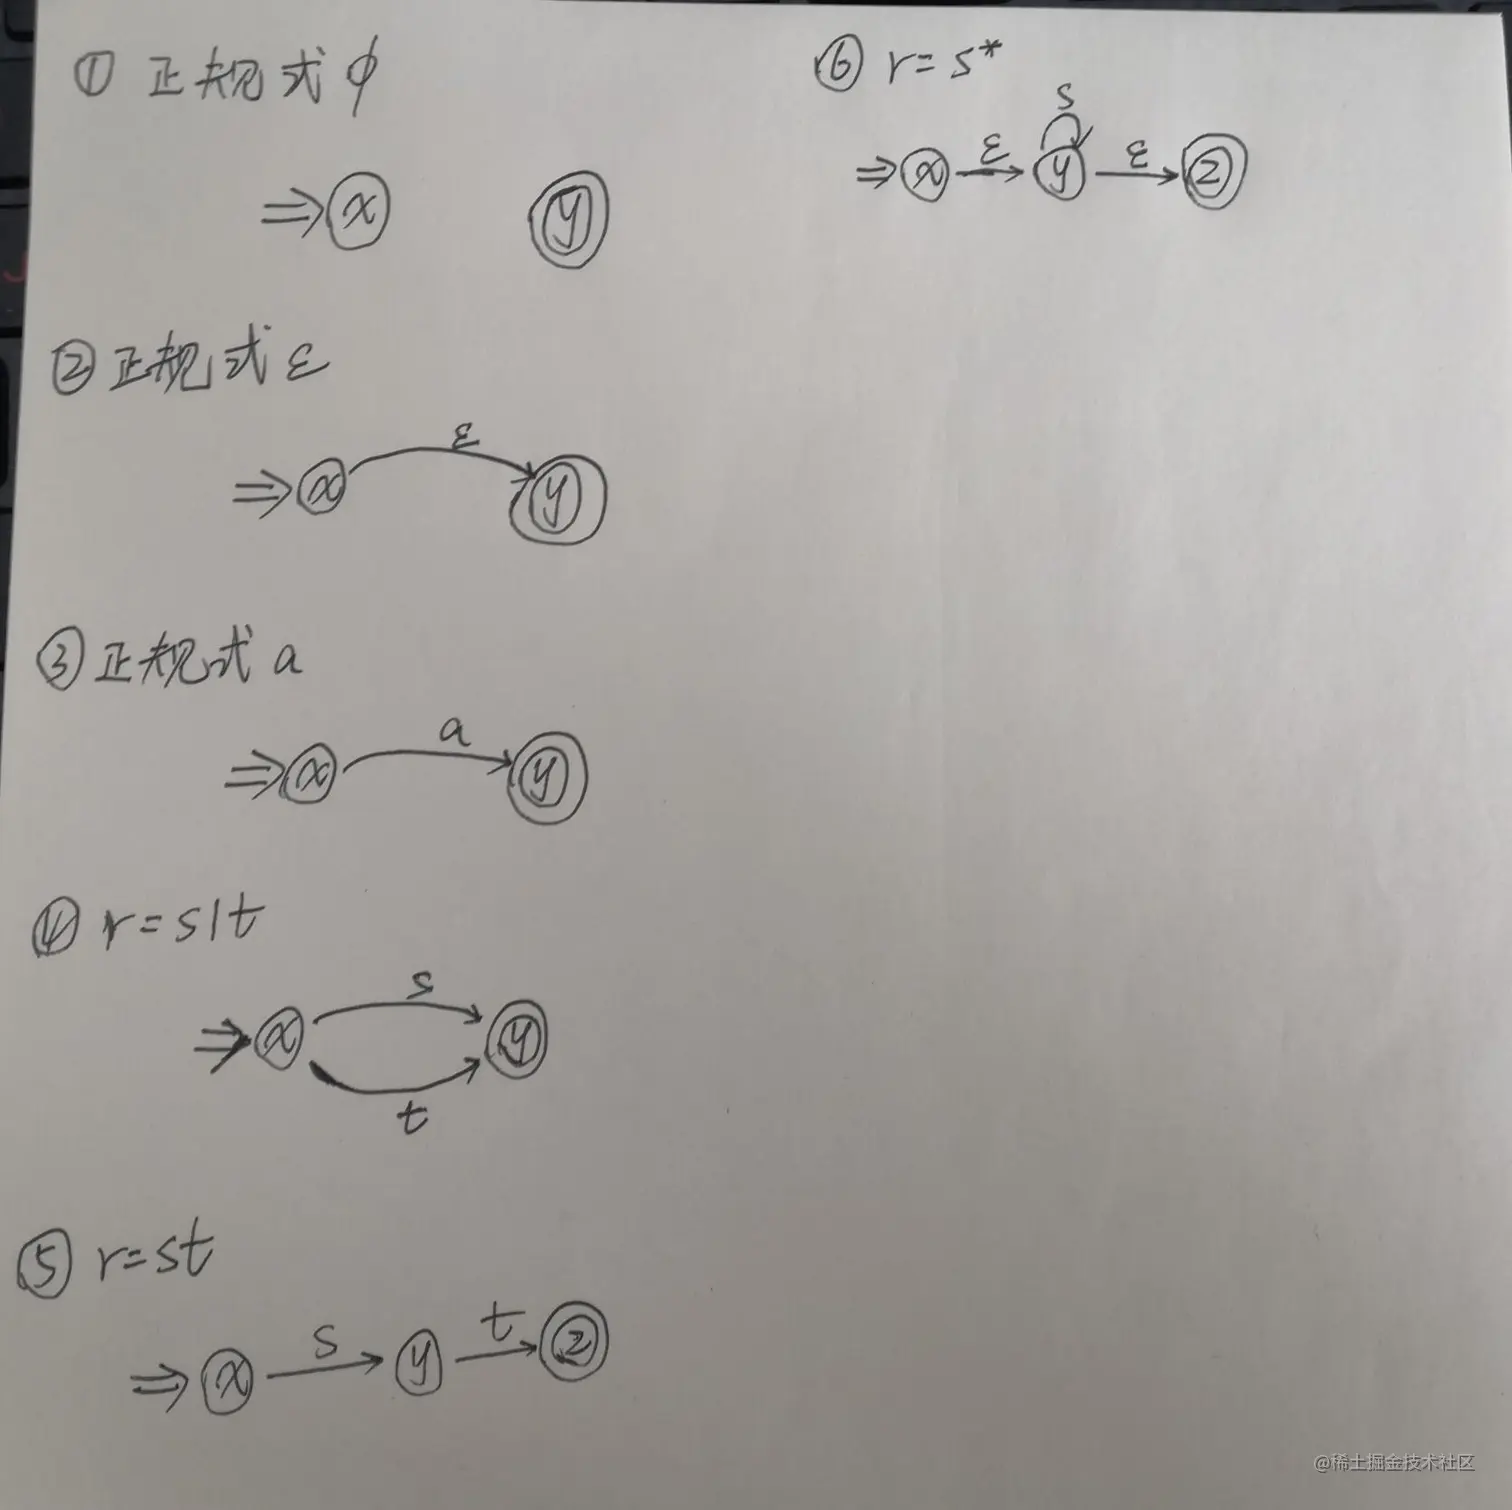 ① 正规式 ϕ
⇒ x y
② 正规式 ε
ε
⇒ x y
③ 正规式 a
a
⇒ x y
④ r=s|t
s
⇒ x y
t
⑤ r=st
s t
⇒ x y z
⑥ r=s*
s
ε ε
⇒ x y z
@稀土掘金技术社区